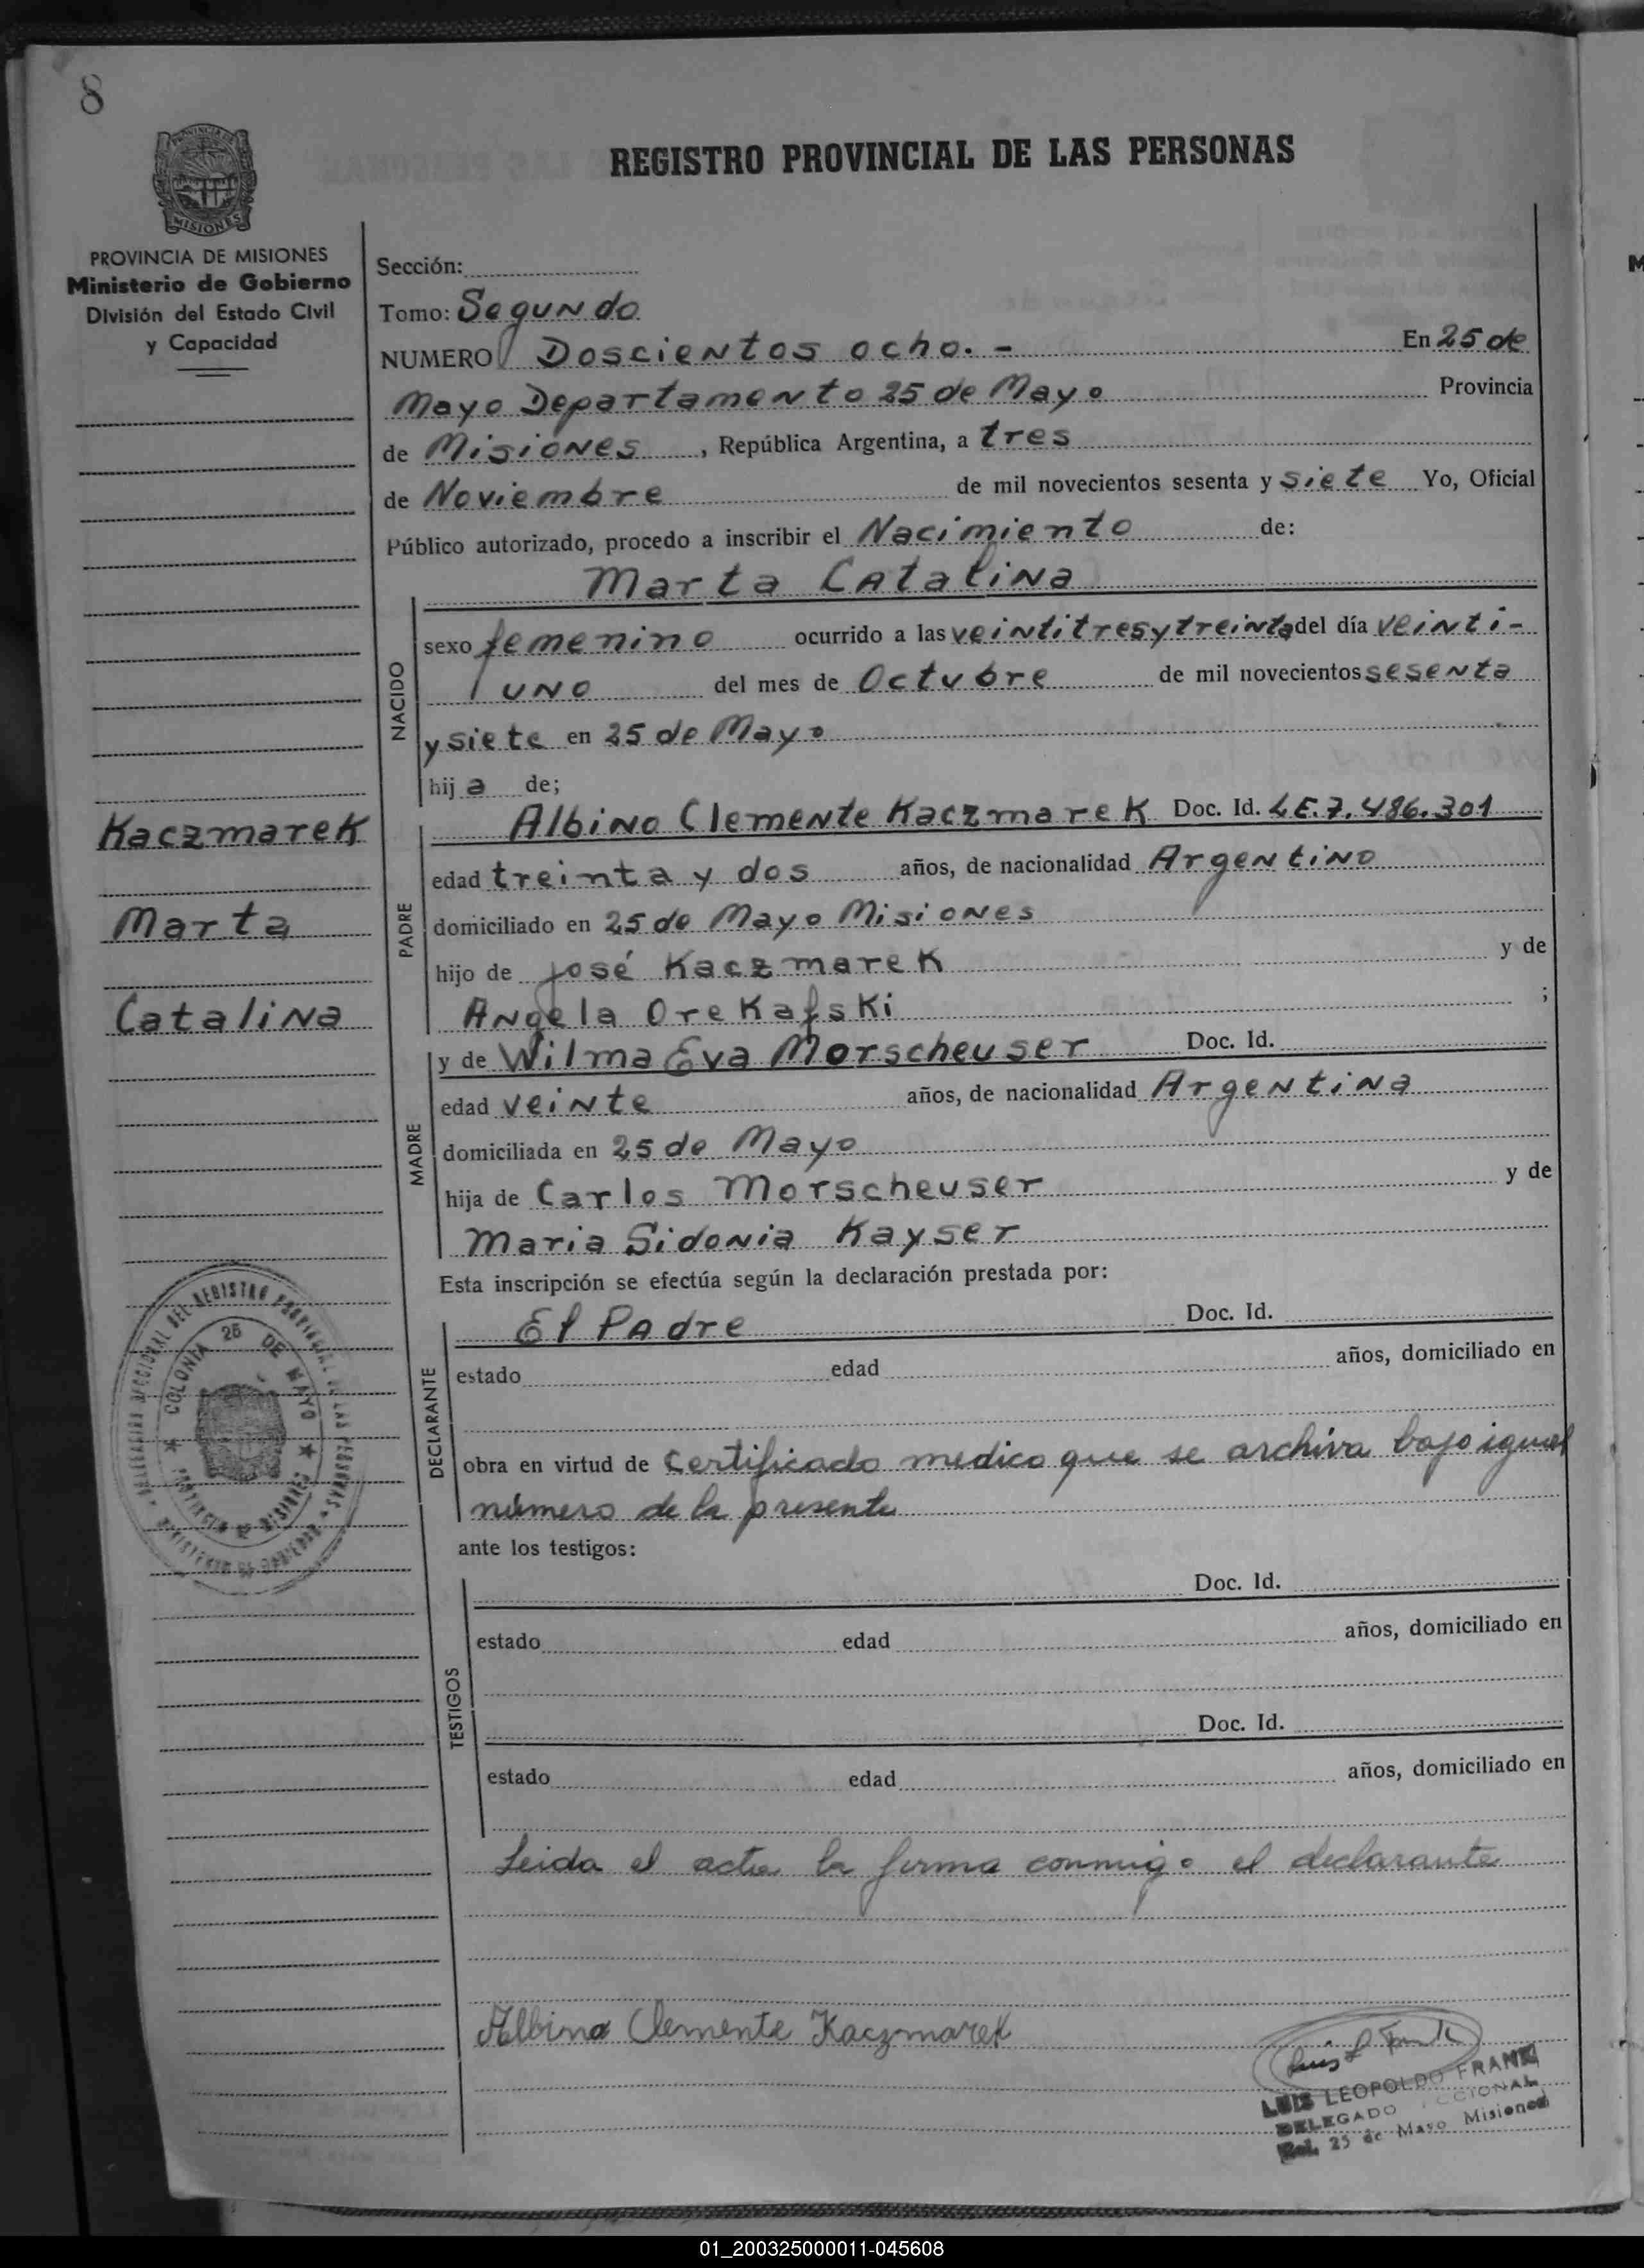 8
REGISTRO PROVINCIAL DE LAS PERSONAS
MISIONES
PROVINCIA DE MISIONES
Ministerio de Gobierno
División del Estado Civil
y Capacidad
Sección:
Tomo: Segundo
NUMERO Doscientos ocho. - En 25 de
Mayo Departamento 25 de Mayo Provincia
de Misiones, República Argentina, a tres
de Noviembre de mil novecientos sesenta y siete Yo, Oficial
Público autorizado, procedo a inscribir el Nacimiento de:
Marta Catalina
NACIDO
sexo femenino ocurrido a las veintitres y treinta del día veinti-
uno del mes de Octubre de mil novecientos sesenta
y siete en 25 de Mayo
hija de;
Kaczmarek
Marta
Catalina
PADRE
Albino Clemente Kaczmarek Doc. Id. L.E. 7.486.301
edad treinta y dos años, de nacionalidad Argentino
domiciliado en 25 de Mayo Misiones
hijo de José Kaczmarek y de
Angela Orekafski ;
MADRE
y de Wilma Eva Morscheuser Doc. Id.
edad veinte años, de nacionalidad Argentina
domiciliada en 25 de Mayo
hija de Carlos Morscheuser y de
Maria Sidonia Kayser
Esta inscripción se efectúa según la declaración prestada por:
DECLARANTE
El Padre Doc. Id.
estado edad años, domiciliado en
obra en virtud de certificado medico que se archiva bajo igual
número de la presente
COLONIA 25 DE MAYO
ante los testigos:
TESTIGOS
Doc. Id.
estado edad años, domiciliado en
Doc. Id.
estado edad años, domiciliado en
Leida el acta la firma conmigo el declarante
Albino Clemente Kaczmarek
LUIS LEOPOLDO FRANK
DELEGADO
Col. 25 de Mayo Misiones
01_200325000011-045608